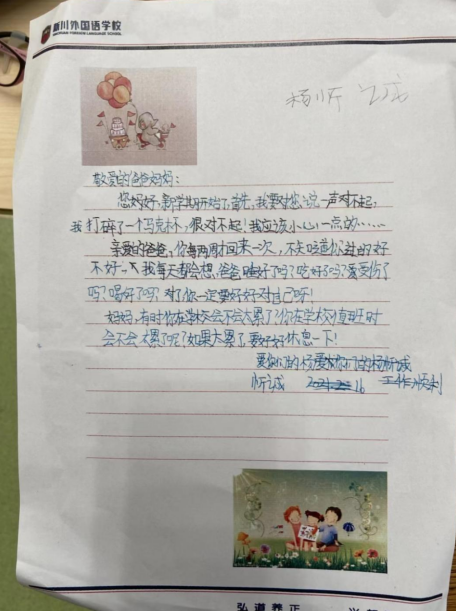 新川外国语学校
敬爱的爸爸妈妈:
您妈好,新学期开始了,首先,我要对您说一声对不起,
我打碎了一个马克杯,很对不起!我应该小心一点的……
亲爱的爸爸,你每两周才回来一次,不知吃道你过的好
不好 我每天都会想,爸爸睡好了吗?吃好了吗?受伤了
吗?喝好了吗?对了你一定要好好对自己呀!
妈妈,有时你在学校会不会太累了?你在学校值班时
会不会累了呢?如果太累了,要好好休息一下!
爱你们的杨
工作顺利
弘道养正